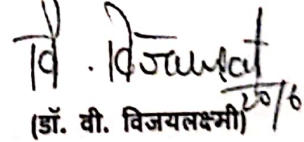 वि. विजयलक्ष्मी
20/6
(डॉ. वी. विजयलक्ष्मी)